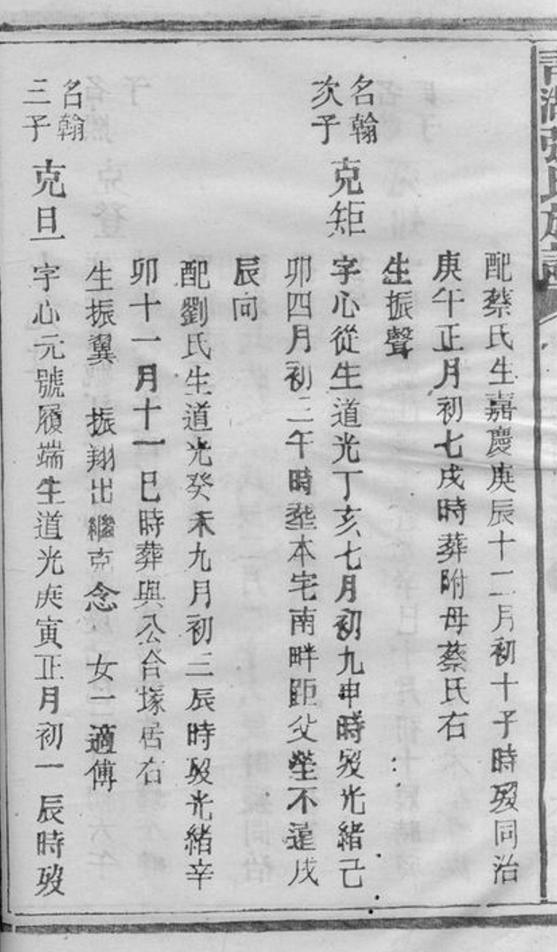 張氏族譜
配蔡氏生嘉慶庚辰十二月初十子時歿同治
庚午正月初七戌時葬附母蔡氏右
生振聲
名翰次子 克矩 字心從生道光丁亥七月初九申時歿光緒己
卯四月初二午時塟本宅南畔距父塋不遠戌
辰向
配劉氏生道光癸未九月初三辰時歿光緒辛
卯十一月十一巳時葬與公合塚居右
生振翼 振翔出繼克念 女一適傅
名翰三子 克旦 字心元號履端生道光庚寅正月初一辰時歿